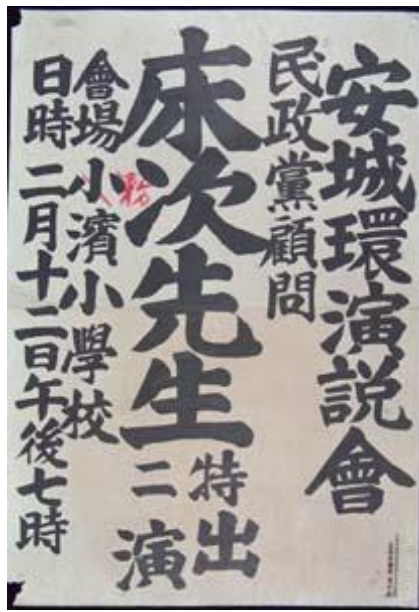 安城環演説會
民政黨顧問
床次先生特ニ出演
會場 小濱小學校
日時 二月十二日午後七時